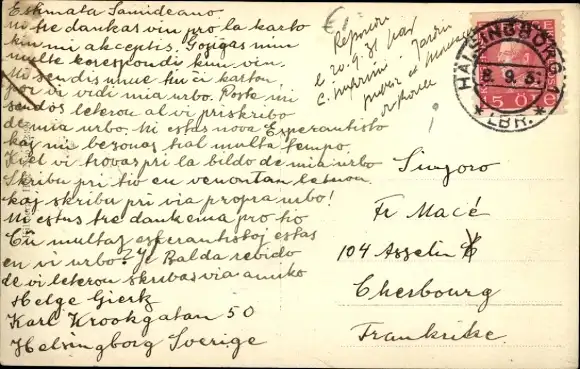 Estimata Samideano
Mi tre dankas vin pro la karto
kiu mi akceptis. Gojigas min
multe korespondi kun vin.
Mi sendis unue ĉi karton
por vi vidi mia urbo. Poste mi
sendos leteron al vi priskribo
de mia urbo. Mi estas nova Esperantisto
kaj mi bezonas tial multa tempo.
Kiel vi trovas pri la bildo de mia urbo
Skribu pri tio en venontan leteron
kaj skribu pri via propra urbo!
Mi estus tre dankema pro tio
Ĉu multaj esperantistoj estas
en vi urbo? Je Balda revido
de vi leteron skribas via amiko
Helge Gierk
Karl Krookgatan 50
Helsingborg Sverige
€
Répondu
le 20.9.31 par
c.
Jardin
HÄLSINGBORG 1
8.9.31
* LBR. *
SVERIGE
5 ÖRE
Sinjoro
Fr Macé
104 Asselin
Cherbourg
Frankrike.